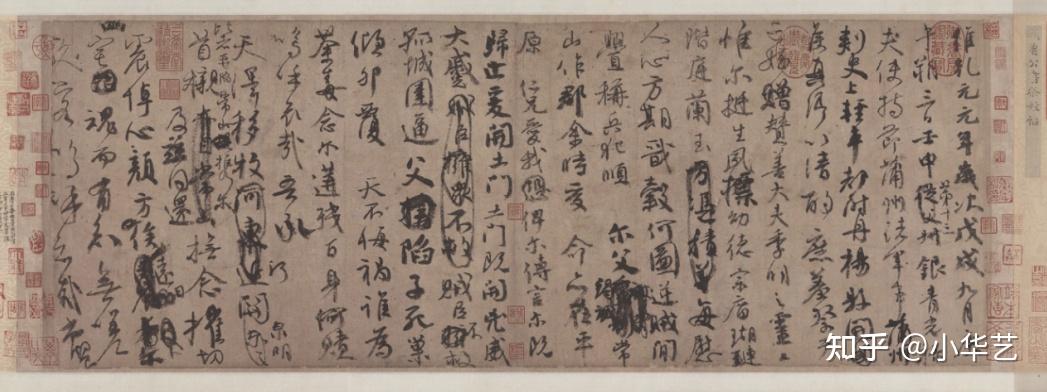 維乾元元年歲次戊戌九月庚
午朔三日壬申第十三從父銀青光祿
夫使持節蒲州諸軍事蒲州
刺史上輕車都尉丹楊縣開國
侯真卿以清酌庶羞祭于
亡姪贈贊善大夫季明之靈曰
惟爾挺生夙標幼德宗廟瑚璉
階庭蘭玉方憑積善每慰
人心方期戩穀何圖逆賊閒
釁稱兵犯順爾父竭誠常
山作郡余時受命亦在平
原仁兄愛我俾爾傳言爾既
歸止爰開土門土門既開凶威
大蹙賊臣擁眾不救賊臣不救
孤城圍逼父陷子死巢
傾卵覆天不悔禍誰為
荼毒念爾遘殘百身何贖
嗚乎哀哉吾承
天澤移牧河東近河關泉明
比者再陷常山攜爾
首櫬及茲同還亦自常山撫念摧切
震悼心顏方俟遠日
宅兆魂而有知無嗟久
客嗚呼哀哉尚饗
知乎 @小华艺